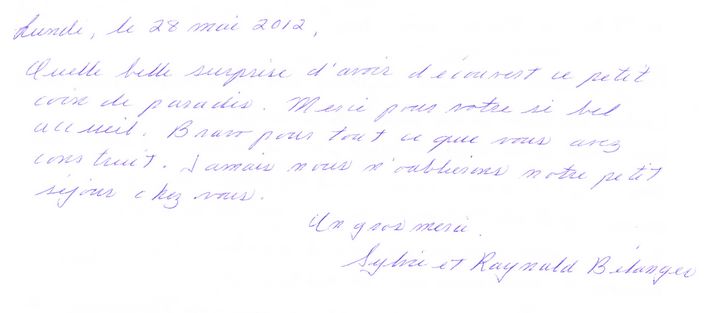 Lundi, le 28 mai 2012,
Quelle belle surprise d'avoir découvert ce petit
coin de paradis. Merci pour votre si bel
accueil. Bravo pour tout ce que vous avez
construit. Jamais nous n'oublierons notre petit
séjour chez vous.
Un gros merci.
Sylvie et Raynald Bélanger